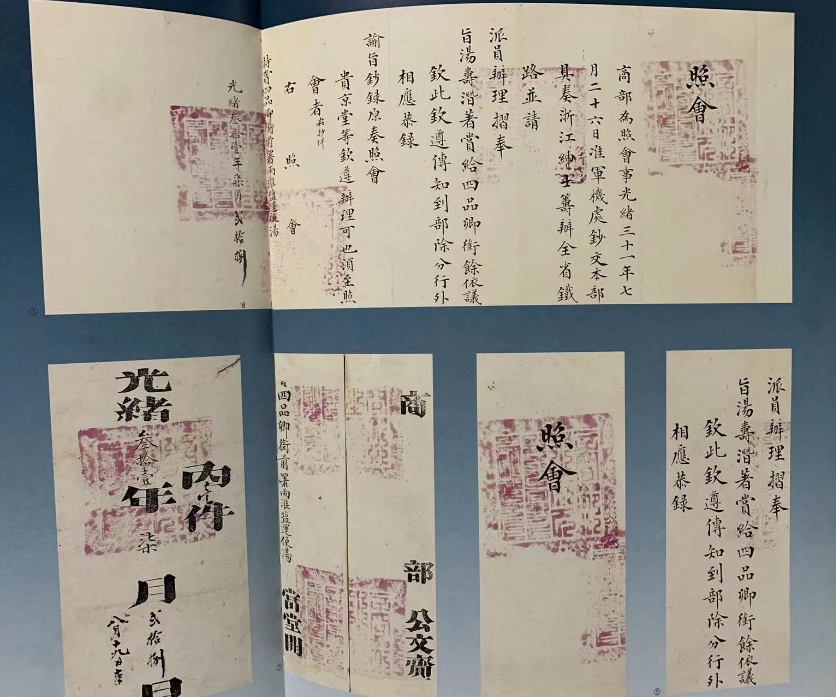 照會
商部為照會事光緒三十一年七
月二十六日准軍機處鈔交本部
具奏浙江紳士籌辦全省鐵
路並請
派員辦理摺奉
旨湯壽潛著賞給四品卿銜餘依議
欽此欽遵傳知到部除分行外
相應恭録
諭旨鈔録原奏照會
貴京堂等欽遵辦理可也須至照
會者
右照會
特賞四品卿銜前署兩淮鹽運使湯
光緒叁拾壹年柒月貳拾捌日
①
光緒叁拾壹年柒月貳拾捌日
內件
商部公文齋
四品卿銜前署兩淮鹽運使湯
當堂開
照會
派員辦理摺奉
旨湯壽潛著賞給四品卿銜餘依議
欽此欽遵傳知到部除分行外
相應恭録